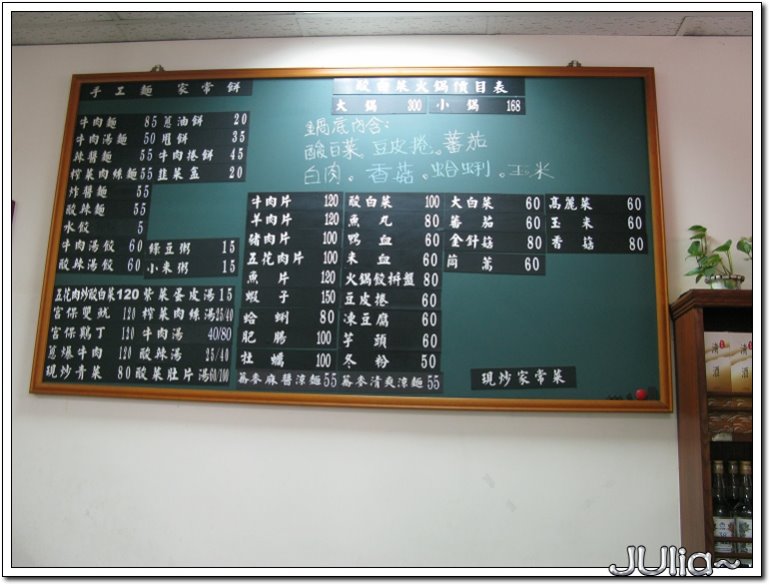 手工麵 家常餅
牛肉麵 85 蔥油餅 20
牛肉湯麵 50 甩餅 35
辣醬麵 55 牛肉捲餅 45
榨菜肉絲麵 55 韭菜盒 20
炸醬麵 55
酸辣麵 55
水餃 5
牛肉湯餃 60 綠豆粥 15
酸辣湯餃 60 小米粥 15
五花肉炒酸白菜 120 紫菜蛋皮湯 15
宮保雙魷 120 榨菜肉絲湯 25/40
宮保鷄丁 120 牛肉湯 40/80
蔥爆牛肉 120 酸辣湯 25/40
現炒青菜 80 酸菜肚片湯 60/100
酸白菜火鍋價目表
大鍋 300 小鍋 168
鍋底內含:
酸白菜、豆皮捲。蕃茄
白肉。香菇。蛤蜊。玉米
牛肉片 120 酸白菜 100 大白菜 60 高麗菜 60
羊肉片 120 魚丸 80 蕃茄 60 玉米 60
豬肉片 100 鴨血 60 金針菇 80 香菇 80
五花肉片 100 米血 60 茼蒿 60
魚片 120 火鍋餃拼盤 80
蝦子 150 豆皮捲 60
蛤蜊 80 凍豆腐 60
肥腸 100 芋頭 60
牡蠣 100 冬粉 50
蕎麥麻醬涼麵 55 蕎麥清爽涼麵 55
現炒家常菜
清酒 清酒
JUlia~